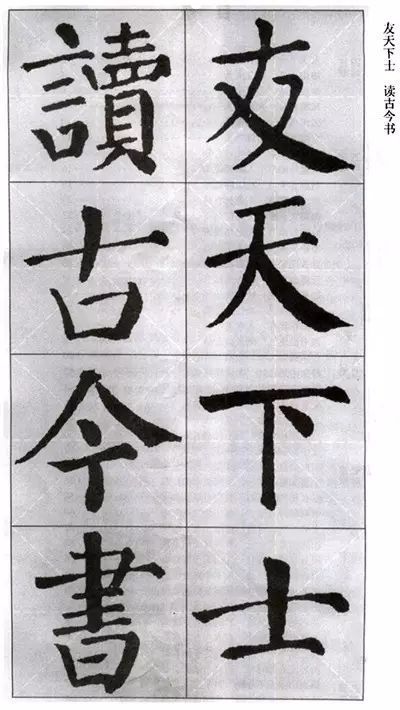 友天下士
讀古今書
友天下士 读古今书